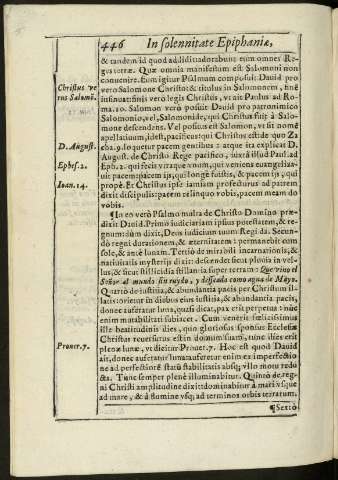 446 In solennitate Epiphaniæ,
& tandem id quod addit: adorabunt eum omnes Re-
ges terræ. Quæ omnia manifestum est Salomoni non
conuenire. Eum igitur Psalmum composuit Dauid pro
Christus ve
rus Salomõ.
vero Salomone Christo: & titulus in Salomonem, sine
insinuat finis vero legis Christus, vt ait Paulus ad Ro-
ma. 10. Salomon verò posuit Dauid pro patronimico
Salomonio, vel, Salomonide, qui Christus fuit à Salo-
mone descendens. Vel posuit est Salomon, vt sit nomẽ
apellatiuum, idest, pacificus: qui Christus est de quo Za
D. August.
cha. 9. loquetur pacem gentibus: atque ita explicat D.
August. de Christo Rege pacifico, iuxta illud Paul. ad
Ephes. 2.
Eph. 2. qui fecit vtraque vnum, qui veniens euangeliza-
uit pacem: pacem ijs, qui longè fuistis, & pacem ijs, qui
Ioan. 14.
propè. Et Christus ipse iamiam profecturus ad patrem
dixit discipulis: pacem relinquo vobis, pacem meam do
vobis.
¶In eo verò Psalmo multa de Christo Domino præ-
dixit Dauid. Primò iudiciariam ipsius potestatem, & re-
gnum: dùm dixit, Deus iudicium tuum Regi da. Secun-
dò regni durationem, & æternitatem: permanebit cum
sole, & ante lunam. Tertiò de mirabili incarnationis, &
natiuitatis mysterijs dixit: descendet sicut pluuia in vel-
lus, & sicut stillicidia stillantia super terram: Que vino el
Señor al mundo sin ruydo, y desseado como agua de Mayo.
Quartò de iustitia, & abundantia pacis per Christum il-
latis: orietur in diebus eius iustitia, & abundantia pacis,
donec auferatur luna, quasi dicat, pax erit perpetua: nũc
enim mutabilitati subiacet. Cum venerit fœlicissimus
ille beatitudinis dies, quo gloriosus sponsus Ecclesiæ
Christus reuersurus est in domum suam, nunc dies erit
Prouer. 7.
plenæ lunæ, vt dicitur Prouer. 7. Hoc est quod Dauid
ait, donec auferatur luna: auferetur enim ex imperfectio
ne ad perfectionẽ statũ stabilitatis absq; vllo motu redu
cta. Tunc semper plenè illuminabitur. Quintò de re-
gni Christi amplitudine dixit: dominabitur à mari vsque
ad mare, & à flumine vsq; ad terminos orbis terrarum.
¶Sextò